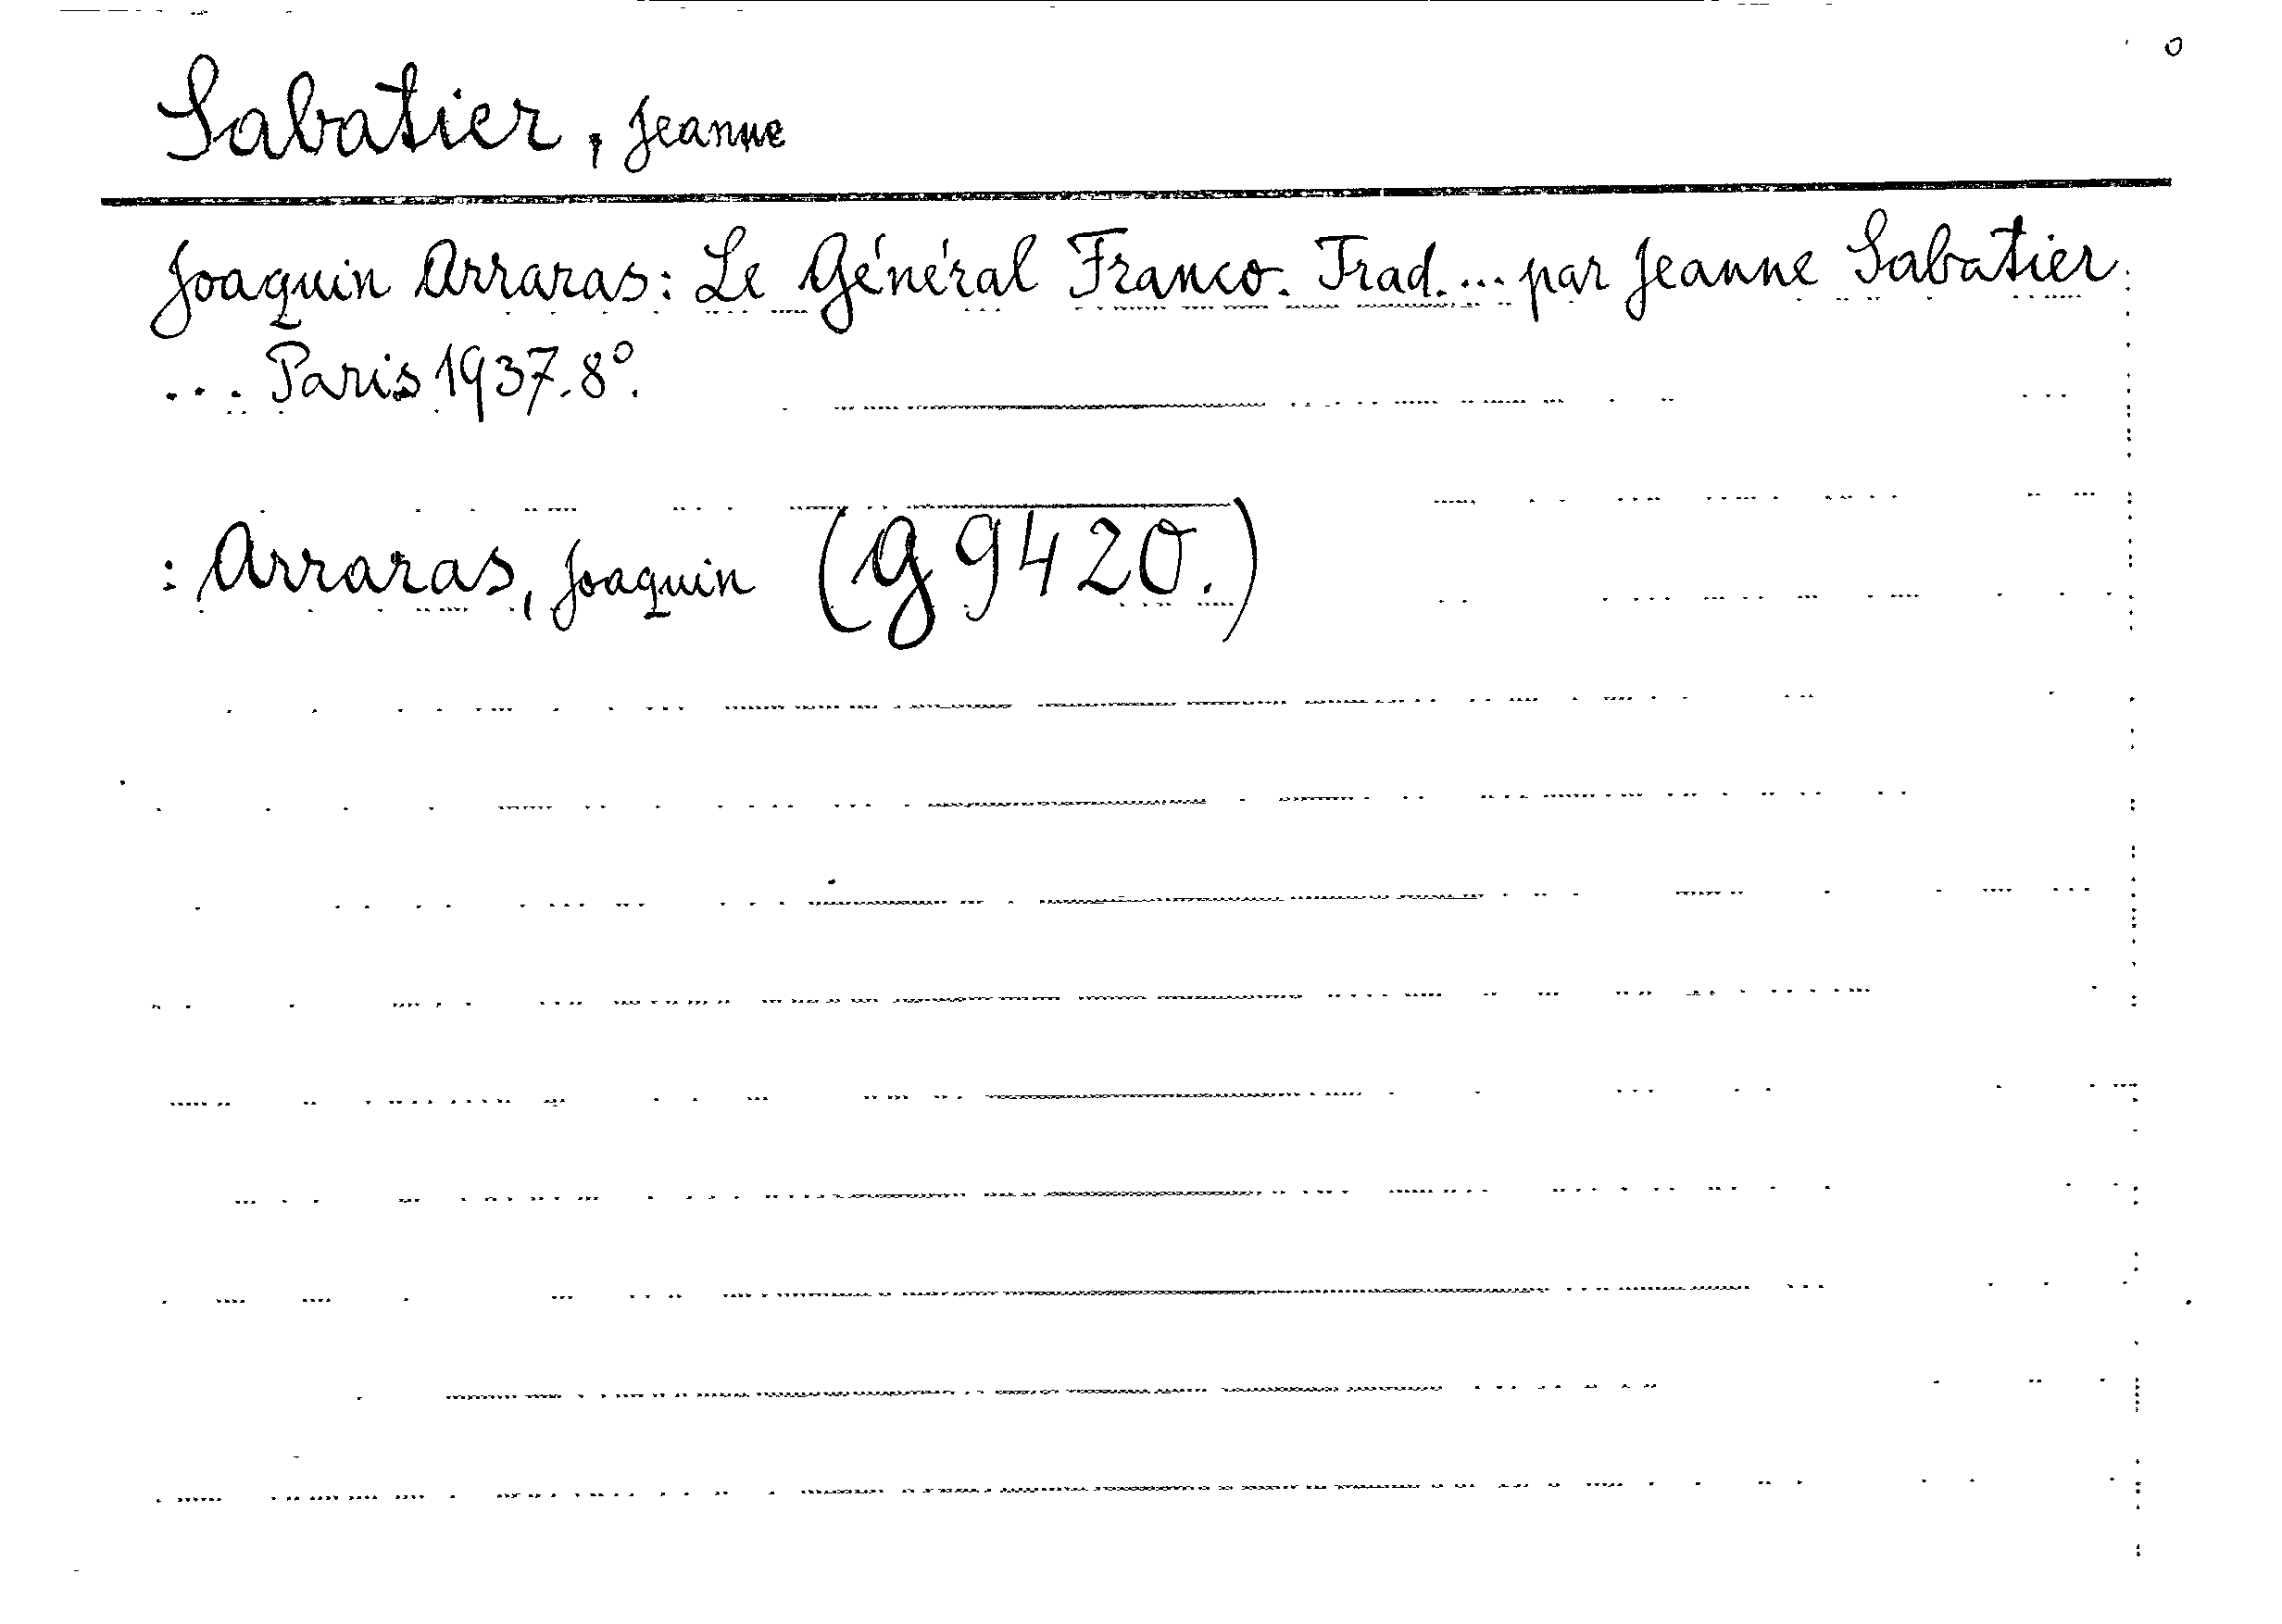 Sabatier, Jeanne
Joaquin Arraras: Le Général Franco. Trad. ... par Jeanne Sabatier
... Paris 1937. 8°.
: Arraras, Joaquin (G 9420.)